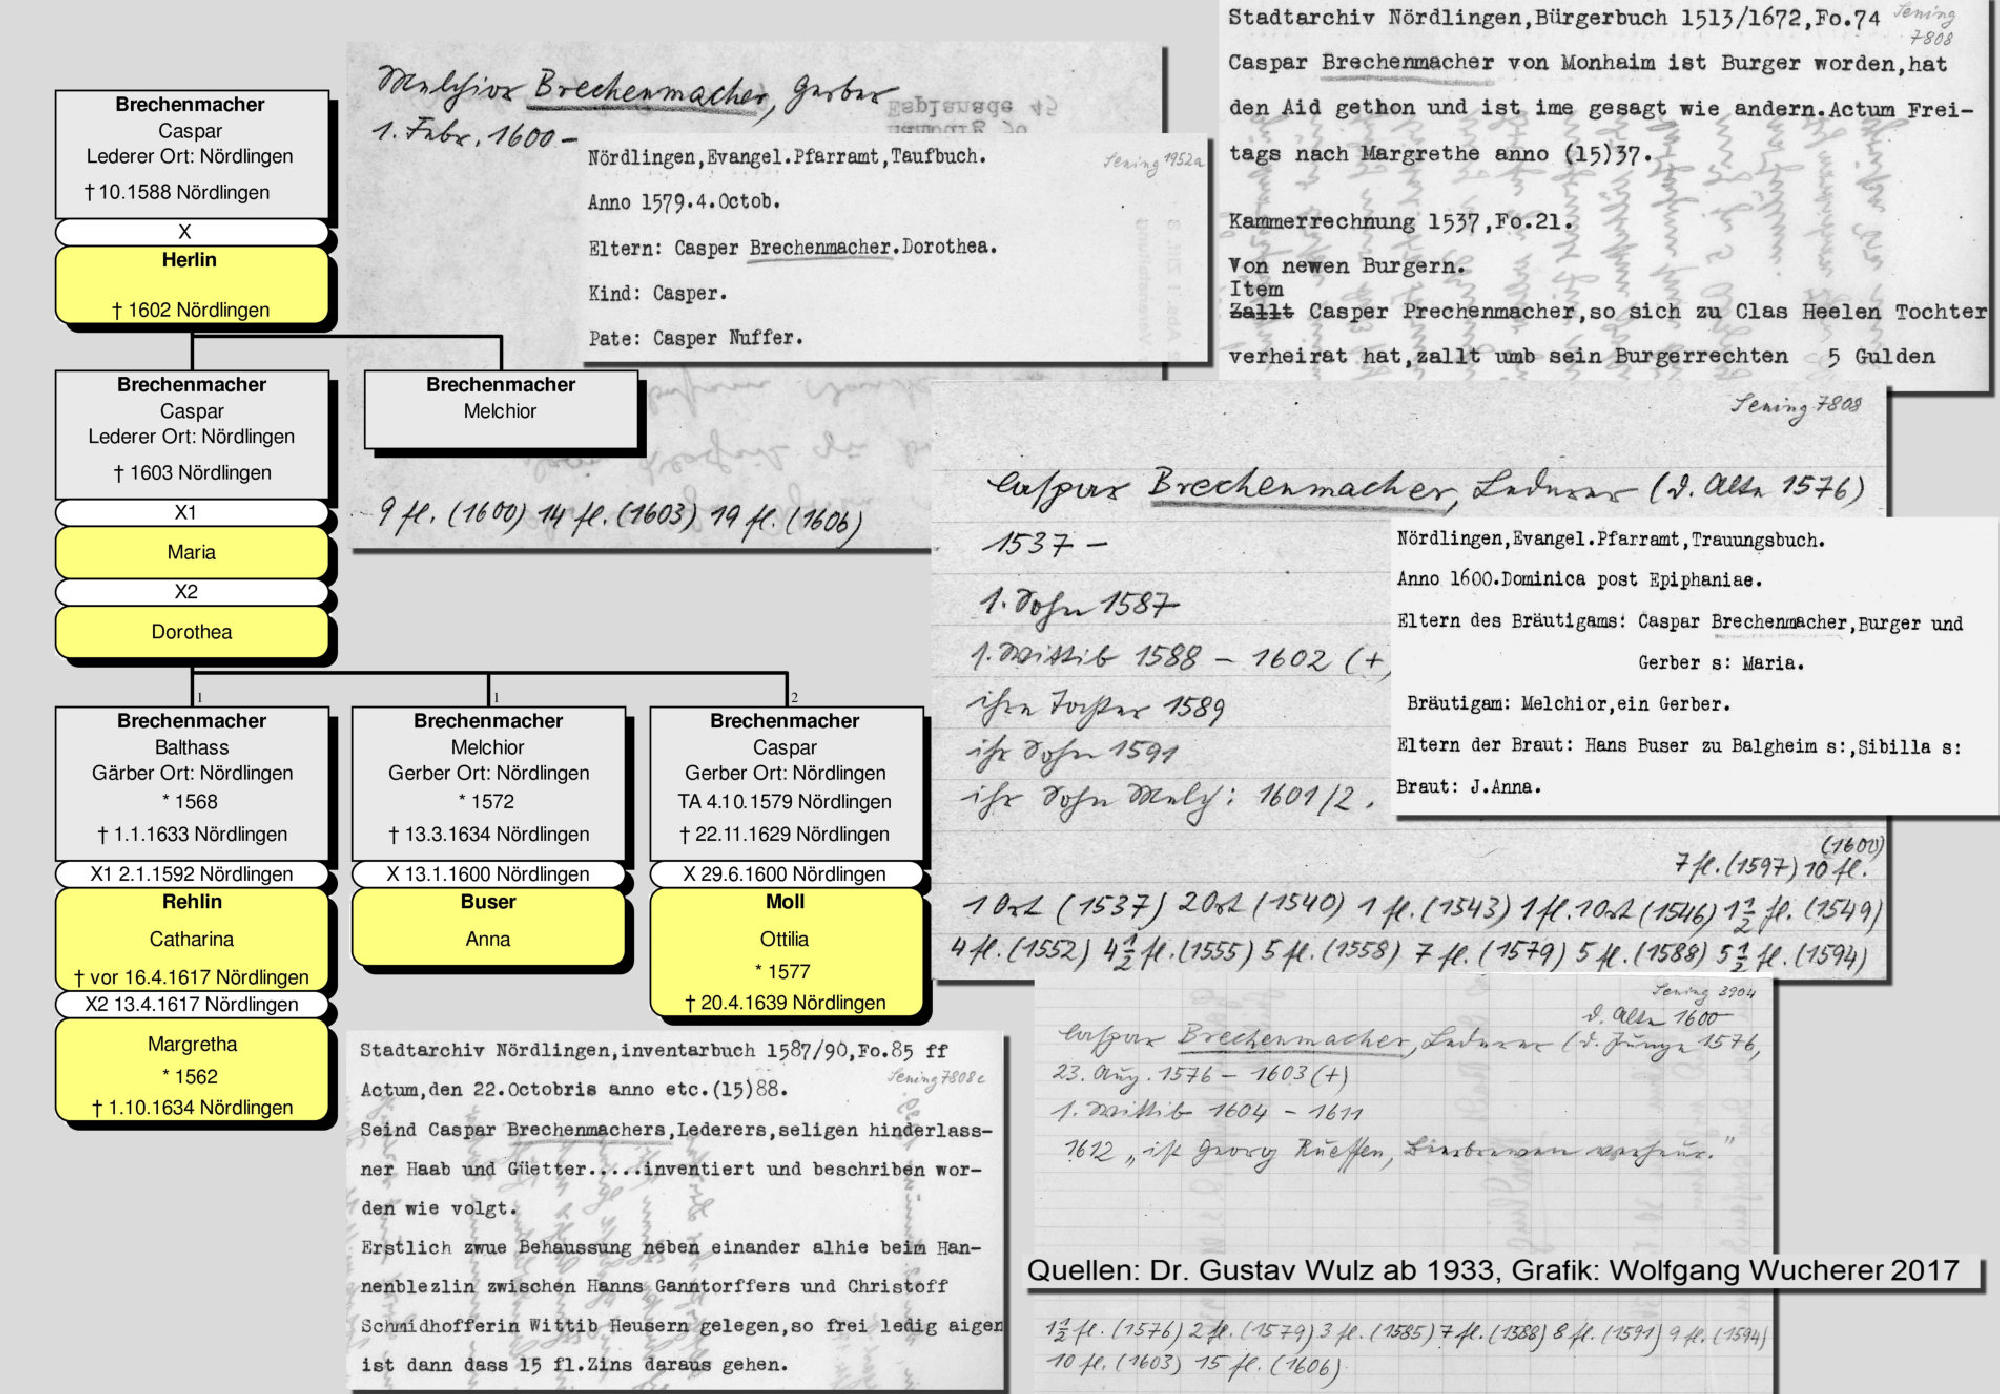 Brechenmacher
Caspar
Lederer Ort: Nördlingen
† 10.1588 Nördlingen
X
Herlin
† 1602 Nördlingen
Brechenmacher
Caspar
Lederer Ort: Nördlingen
† 1603 Nördlingen
X1
Maria
X2
Dorothea
Brechenmacher
Melchior
1
1
2
Brechenmacher
Balthass
Gärber Ort: Nördlingen
* 1568
† 1.1.1633 Nördlingen
X1 2.1.1592 Nördlingen
Rehlin
Catharina
† vor 16.4.1617 Nördlingen
X2 13.4.1617 Nördlingen
Margretha
* 1562
† 1.10.1634 Nördlingen
Brechenmacher
Melchior
Gerber Ort: Nördlingen
* 1572
† 13.3.1634 Nördlingen
X 13.1.1600 Nördlingen
Buser
Anna
Brechenmacher
Caspar
Gerber Ort: Nördlingen
TA 4.10.1579 Nördlingen
† 22.11.1629 Nördlingen
X 29.6.1600 Nördlingen
Moll
Ottilia
* 1577
† 20.4.1639 Nördlingen
Melchior Brechenmacher, Gerber
1. Febr. 1600 -
9 fl. (1600) 14 fl. (1603) 19 fl. (1606)
Nördlingen,Evangel.Pfarramt,Taufbuch.
Sening 1952a
Anno 1579.4.Octob.
Eltern: Casper Brechenmacher.Dorothea.
Kind: Casper.
Pate: Casper Nuffer.
Stadtarchiv Nördlingen,Bürgerbuch 1513/1672,Fo.74
Sening 7808
Caspar Brechenmacher von Monhaim ist Burger worden,hat
den Aid gethon und ist ime gesagt wie andern.Actum Frei-
tags nach Margrethe anno (15)37.
Kammerrechnung 1537,Fo.21.
Von newen Burgern.
Item
Zallt Casper Prechenmacher,so sich zu Clas Heelen Tochter
verheirat hat,zallt umb sein Burgerrechten 5 Gulden
Sening 7808
Caspar Brechenmacher, Lederer (d. Alte 1576)
1537 -
1. Sohn 1587
1. Wittib 1588 - 1602 (+)
ihre Tochter 1589
ihr Sohn 1591
ihr Sohn Melch: 1601/2.
(1600)
7 fl. (1597) 10 fl.
1 Ort (1537) 2 Ort (1540) 1 fl. (1543) 1 fl. 1 Ort (1546) 1½ fl. (1549)
4 fl. (1552) 4½ fl. (1555) 5 fl. (1558) 7 fl. (1579) 5 fl. (1588) 5½ fl. (1594)
Nördlingen,Evangel.Pfarramt,Trauungsbuch.
Anno 1600.Dominica post Epiphaniae.
Eltern des Bräutigams: Caspar Brechenmacher,Burger und
Gerber s: Maria.
Bräutigam: Melchior,ein Gerber.
Eltern der Braut: Hans Buser zu Balgheim s:,Sibilla s:
Braut: J.Anna.
Stadtarchiv Nördlingen,inventarbuch 1587/90,Fo.85 ff
Sening 7808c
Actum,den 22.Octobris anno etc.(15)88.
Seind Caspar Brechenmachers,Lederers,seligen hinderlass-
ner Haab und Güetter.....inventiert und beschriben wor-
den wie volgt.
Erstlich zwue Behaussung neben einander alhie beim Han-
nenblezlin zwischen Hanns Ganntorffers und Christoff
Schmidhofferin Wittib Heusern gelegen,so frei ledig aigen
ist dann dass 15 fl.Zins daraus gehen.
Sening 3904
d. Alte 1600
Caspar Brechenmacher, Lederer (d. Junge 1576,
23. Aug. 1576 - 1603 (+)
1. Wittib 1604 - 1611
1612 „ist Georg Rueffen, Bierbrewen verheur."
Quellen: Dr. Gustav Wulz ab 1933, Grafik: Wolfgang Wucherer 2017
1½ fl. (1576) 2 fl. (1579) 3 fl. (1585) 7 fl. (1588) 8 fl. (1591) 9 fl. (1594)
10 fl. (1603) 15 fl. (1606)